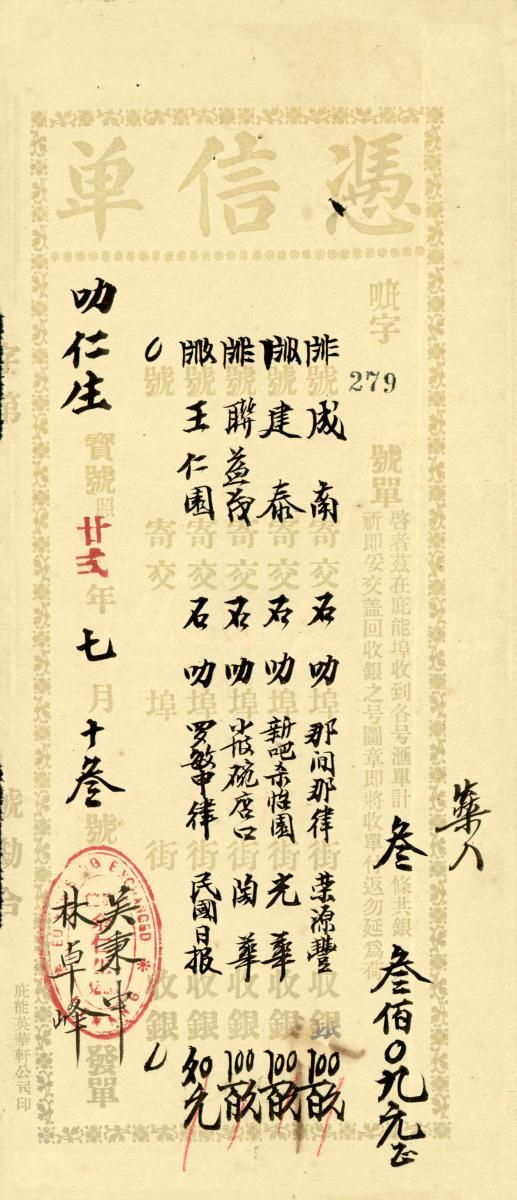 憑信单
吡字
279
號單
啓者茲在庇能埠收到各号滙單計 叁 條共銀 叁佰〇九元正
祈即妥交盖回收銀之号圖章即將收單 返勿延為荷
成南 號 寄交 石叻 埠 那间那律 街 荣源豐 收銀 100
建泰 號 寄交 石叻 埠 新吧 街 光華 收銀 100
聯益茂 號 寄交 石叻 埠 小坡碗店口 街 陶華 收銀 100
王仁園 號 寄交 石叻 埠 罗敏申律 街 民國日报 收銀 元
號 寄交 埠 街 收銀
叻仁生 寶號照 廿弍 年 七 月 十叁 號 發單
吴秉中
林卓峰
EXCHANGE
庇能英華軒公司印